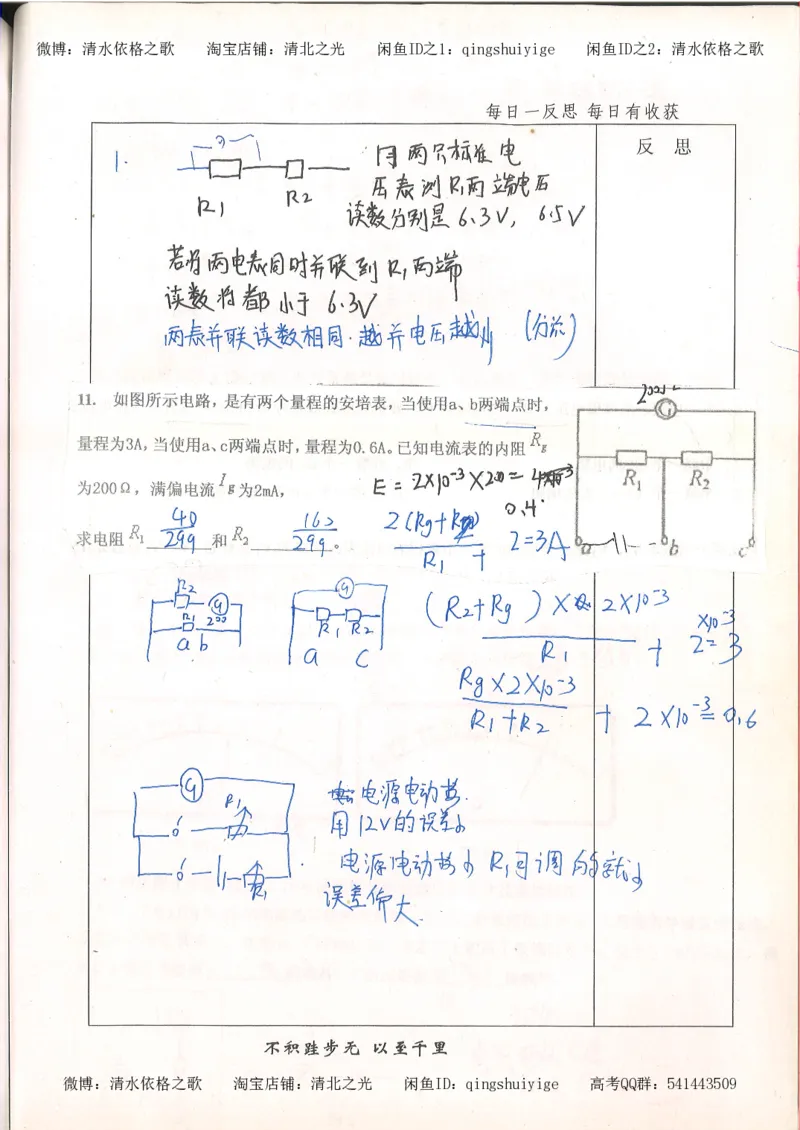 微博：清水依格之歌 淘宝店铺：清北之光 闲鱼ID之1：qingshuiyige 闲鱼ID之2：清水依格之歌
每日一反思 每日有收获
反 思
1.
R1 R2
用两只标准电
压表测R1两端电压
读数分别是 6.3V, 6.5V
若将两电表同时并联到R1两端
读数将都小于 6.3V
两表并联读数相同. 越并电压越小 (分流)
11. 如图所示电路，是有两个量程的安培表，当使用a、b两端点时，
量程为3A，当使用a、c两端点时，量程为0.6A。已知电流表的内阻 Rg
为200Ω，满偏电流 Ig 为2mA，
求电阻 R1 40/299 和 R2 160/299 。
G
R1 R2
a b c
E = 2×10⁻³×200 =
0.4
R1 + 2=3A
R2 G
R1 200
a b
G
R1 R2
a c
(R2+Rg)× 2×10⁻³
R1 + 2×10⁻³ = 3
Rg×2×10⁻³
R1+R2 + 2×10⁻³ = 0.6
G
R1
R1
电源电动势.
用12V的误差小
电源电动势小 R1可调的就小
误差偏大.
不积跬步无 以至千里
微博：清水依格之歌 淘宝店铺：清北之光 闲鱼ID：qingshuiyige 高考QQ群：541443509